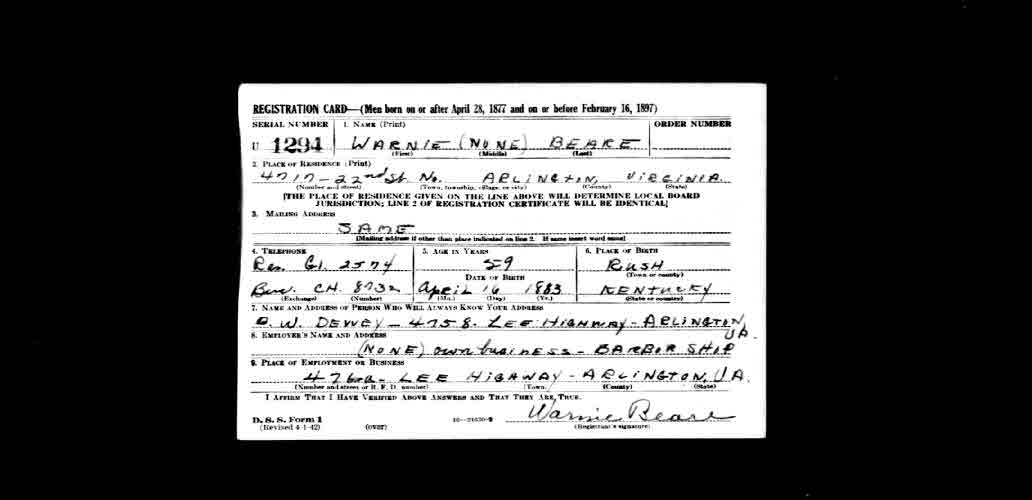 REGISTRATION CARD—(Men born on or after April 28, 1877 and on or before February 16, 1897)
SERIAL NUMBER 1. NAME (Print) ORDER NUMBER
U 1294 WARNIE (NONE) BEARE
(First) (Middle) (Last)
2. PLACE OF RESIDENCE (Print)
4717-22nd St. No. ARLINGTON, VIRGINIA.
(Number and street) (Town, township, village, or city) (County) (State)
[THE PLACE OF RESIDENCE GIVEN ON THE LINE ABOVE WILL DETERMINE LOCAL BOARD
JURISDICTION; LINE 2 OF REGISTRATION CERTIFICATE WILL BE IDENTICAL]
3. MAILING ADDRESS
SAME
[Mailing address if other than place indicated on line 2. If same insert word same]
4. TELEPHONE 5. AGE IN YEARS 6. PLACE OF BIRTH
Res. Gl. 2574 59 RUSH
DATE OF BIRTH (Town or county)
CH. 8732 April 16 1883 KENTUCKY
(Exchange) (Number) (Mo.) (Day) (Yr.) (State or country)
7. NAME AND ADDRESS OF PERSON WHO WILL ALWAYS KNOW YOUR ADDRESS
W. DEWEY - 4758. LEE HIGHWAY - ARLINGTON, VA.
8. EMPLOYER'S NAME AND ADDRESS
(NONE) own business - BARBOR SHOP
9. PLACE OF EMPLOYMENT OR BUSINESS
LEE HIGHWAY - ARLINGTON, VA.
(Number and street or R. F. D. number) (Town) (County) (State)
I AFFIRM THAT I HAVE VERIFIED ABOVE ANSWERS AND THAT THEY ARE TRUE.
D. S. S. Form 1 Warnie Beare
(Revised 4-1-42) (over) (Registrant's signature)